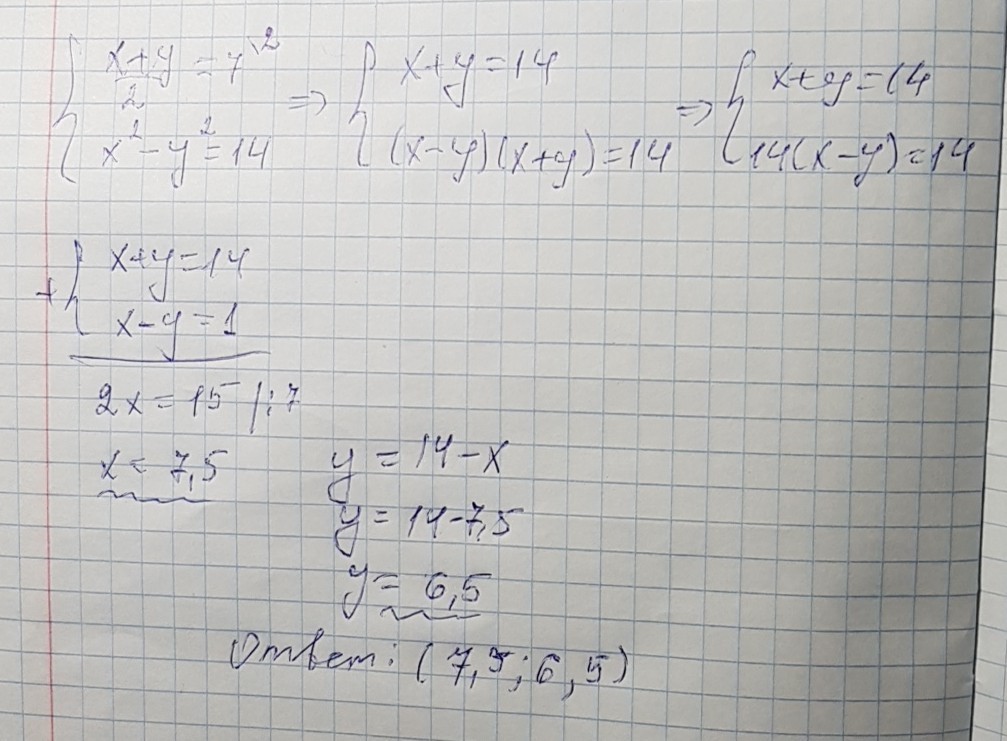 { (x+y)/2 = 7 \2 => { x+y=14 => { x+y=14
x²-y²=14 (x-y)(x+y)=14 14(x-y)=14
+ { x+y=14
x-y=1
2x=15 |:7
x=7,5 y=14-x
y=14-7,5
y=6,5
Ответ: (7,5;6,5)